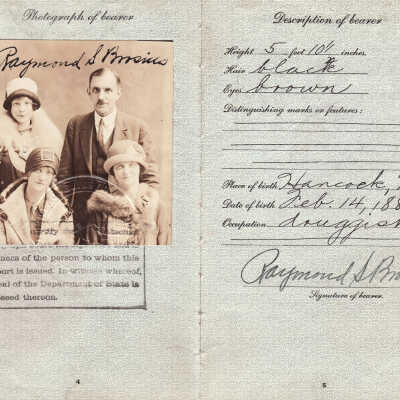 Photograph of bearer
Raymond S Brosius
ness of the person to whom this
port is issued. In witness whereof,
eal of the Department of State is
essed thereon.
4
Description of bearer
Height 5 feet 10½ inches.
Hair black
Eyes brown
Distinguishing marks or features:
Place of birth Hancock,
Date of birth Feb. 14, 188
Occupation druggist
Raymond S Bro
Signature of bearer.
5